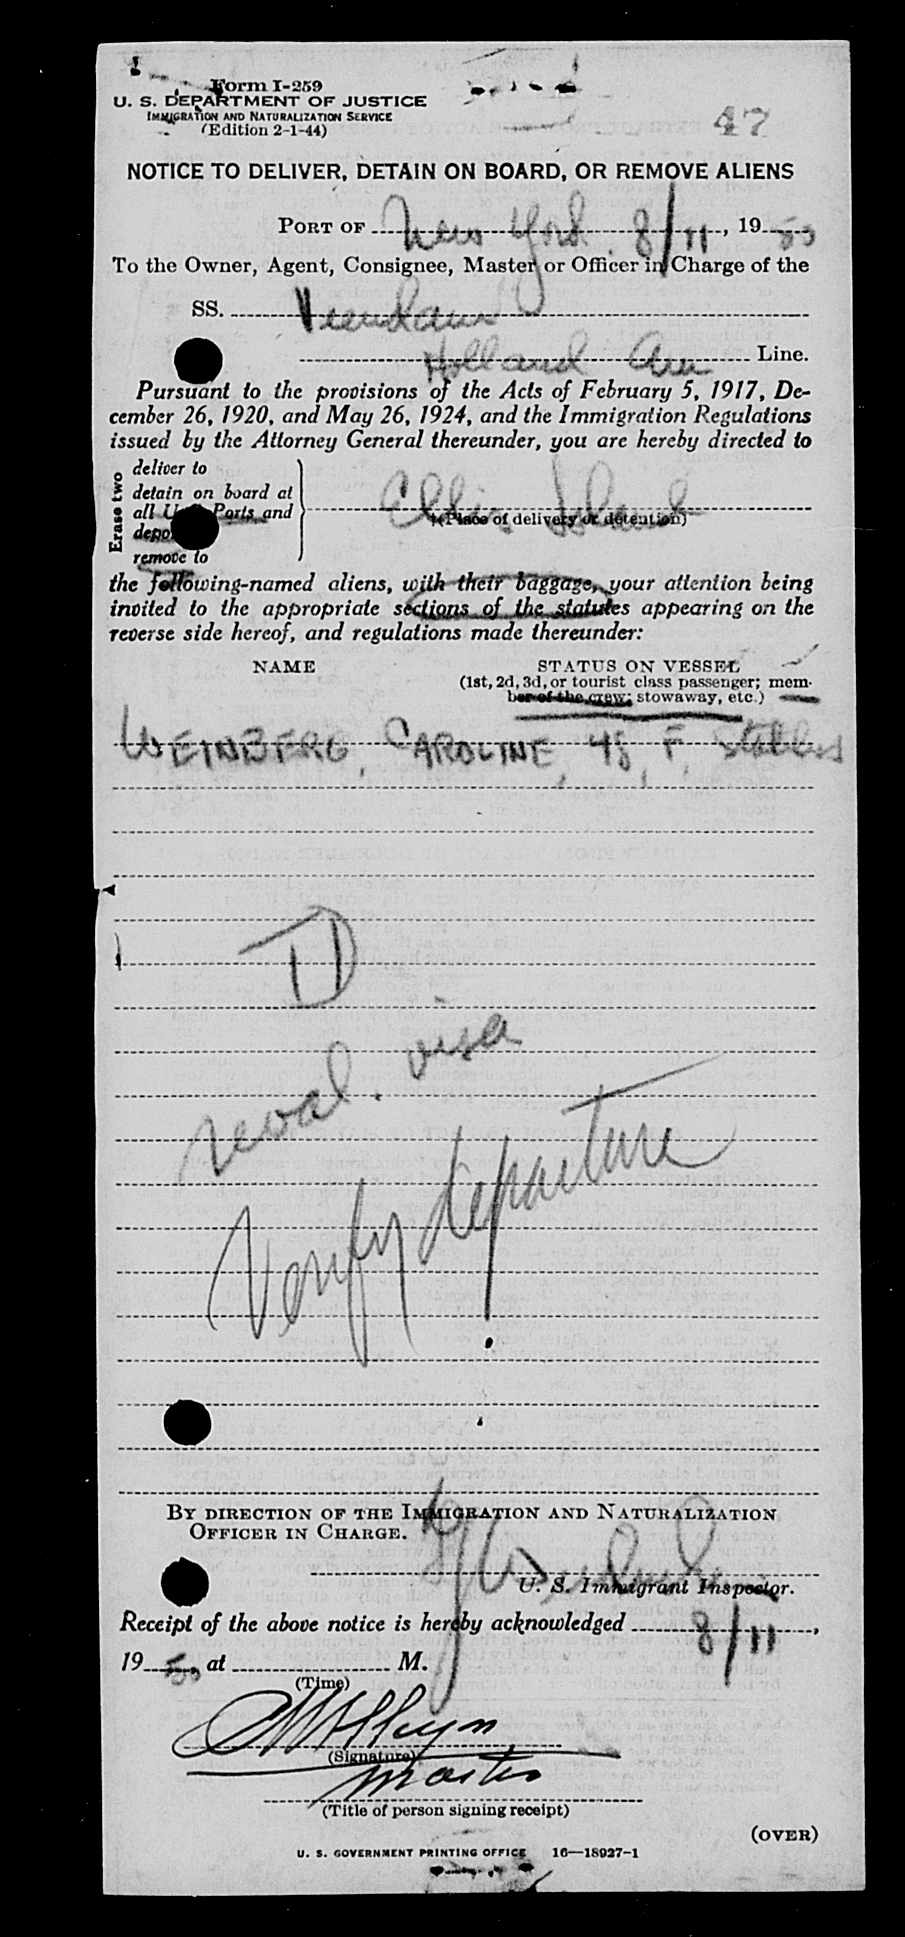 Form I-259
U. S. DEPARTMENT OF JUSTICE
IMMIGRATION AND NATURALIZATION SERVICE
(Edition 2-1-44)
47
NOTICE TO DELIVER, DETAIN ON BOARD, OR REMOVE ALIENS
PORT OF New York 8/11, 1950
To the Owner, Agent, Consignee, Master or Officer in Charge of the
SS. Veendam
Holland Am Line.
Pursuant to the provisions of the Acts of February 5, 1917, De-
cember 26, 1920, and May 26, 1924, and the Immigration Regulations
issued by the Attorney General thereunder, you are hereby directed to
Erase two
deliver to
detain on board at
all U. S. Ports and
deport
remove to
Ellis Island
(Place of delivery or detention)
the following-named aliens, with their baggage, your attention being
invited to the appropriate sections of the statutes appearing on the
reverse side hereof, and regulations made thereunder:
NAME STATUS ON VESSEL
(1st, 2d, 3d, or tourist class passenger; mem-
ber of the crew; stowaway, etc.)
WEINBERG, CAROLINE, 48, F, Stateless
D
reval. visa
Verify departure
BY DIRECTION OF THE IMMIGRATION AND NATURALIZATION
OFFICER IN CHARGE.
U. S. Immigrant Inspector.
Receipt of the above notice is hereby acknowledged 8/11,
1950, at M.
(Time)
(Signature)
Master
(Title of person signing receipt)
(OVER)
U. S. GOVERNMENT PRINTING OFFICE 16—18927-1